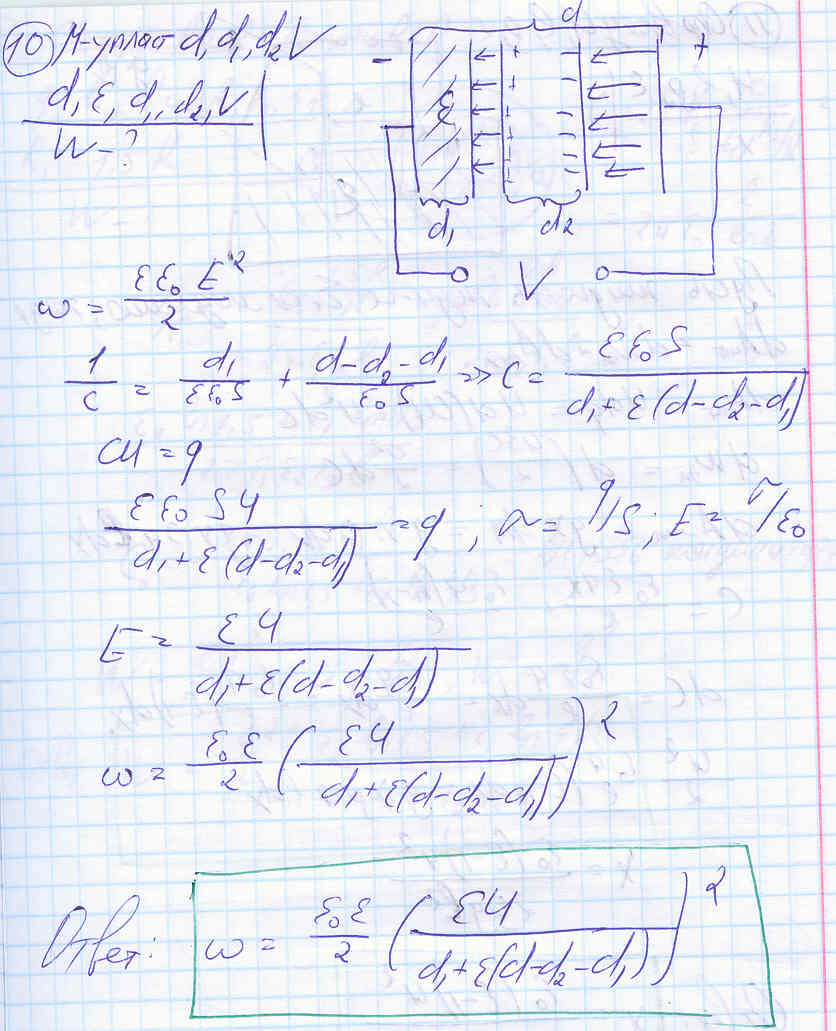 10 М-у пласт d, d₁, d₂ V
d, ε, d₁, d₂, V
W-?
d
- +
+ -
ε
d₁ d₂
V
ω = εε₀E²/2
1/C = d₁/εε₀S + (d-d₂-d₁)/ε₀S => C = εε₀S/(d₁+ε(d-d₂-d₁))
CU = q
εε₀SU/(d₁+ε(d-d₂-d₁)) = q ; σ = q/S ; E = σ/ε₀
E = εU/(d₁+ε(d-d₂-d₁))
ω = ε₀ε/2 (εU/(d₁+ε(d-d₂-d₁)))²
Ответ: ω = ε₀ε/2 (εU/(d₁+ε(d-d₂-d₁)))²